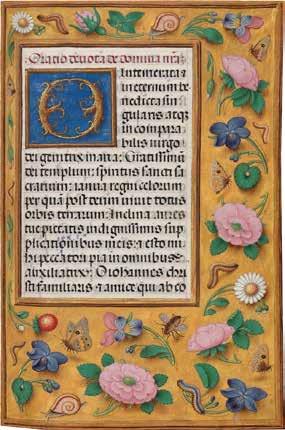 Oratio deuota de domina n̄ra
O Intemerata et
in eternum be
nedicta sin
gularis atq̄
in compara
bilis uirgo
dei genitrix maria: Gratissimū
dei templum: spiritus sancti sa
crarium: ianua regni celorum:
per quā post deum uiuit totus
orbis terrarum: Inclina aures
tue pietatis indignissimis sup
plicationibus meis: et esto mi
hi peccatori pia in omnibus
auxiliatrix: O iohannes chri
sti familiaris et amice qui ab eo